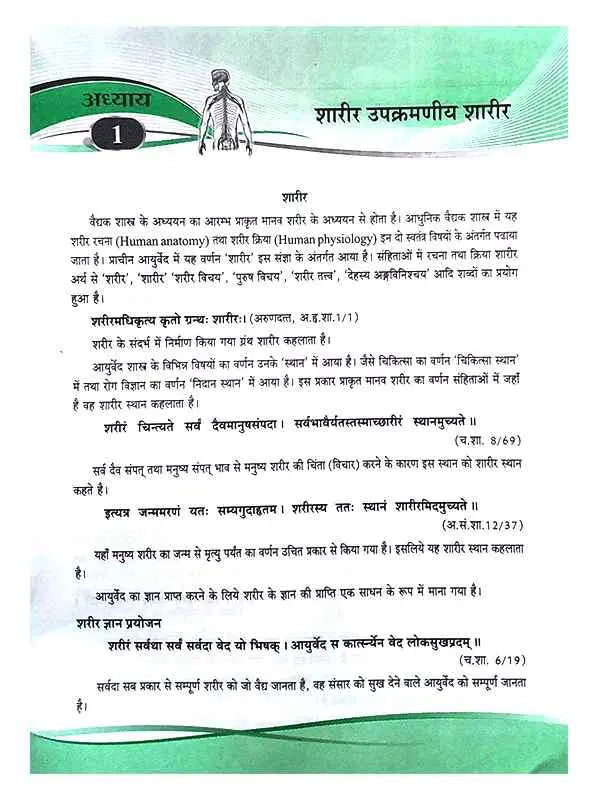 अध्याय
1
शारीर उपक्रमणीय शारीर
शारीर
वैद्यक शास्त्र के अध्ययन का आरम्भ प्राकृत मानव शरीर के अध्ययन से होता है। आधुनिक वैद्यक शास्त्र में यह
शरीर रचना (Human anatomy) तथा शरीर क्रिया (Human physiology) इन दो स्वतंत्र विषयों के अंतर्गत पढाया
जाता है। प्राचीन आयुर्वेद में यह वर्णन 'शारीर' इस संज्ञा के अंतर्गत आया है। संहिताओं में रचना तथा क्रिया शारीर
अर्थ से 'शरीर', 'शारीर' 'शरीर विचय', 'पुरुष विचय', 'शरीर तत्त्व', 'देहस्य अङ्गविनिश्चय' आदि शब्दों का प्रयोग
हुआ है।
शरीरमधिकृत्य कृतो ग्रन्थः शारीरः। (अरुणदत्त, अ.हृ.शा.1/1)
शरीर के संदर्भ में निर्माण किया गया ग्रंथ शारीर कहलाता है।
आयुर्वेद शास्त्र के विभिन्न विषयों का वर्णन उनके 'स्थान' में आया है। जैसे चिकित्सा का वर्णन 'चिकित्सा स्थान'
में तथा रोग विज्ञान का वर्णन 'निदान स्थान' में आया है। इस प्रकार प्राकृत मानव शरीर का वर्णन संहिताओं में जहाँ
है वह शारीर स्थान कहलाता है।
शरीरं चिन्त्यते सर्वं दैवमानुषसंपदा। सर्वभावैर्यतस्तस्माच्छारीरं स्थानमुच्यते॥
(च.शा. 8/69)
सर्व दैव संपत् तथा मनुष्य संपत् भाव से मनुष्य शरीर की चिंता (विचार) करने के कारण इस स्थान को शारीर स्थान
कहते है।
इत्यत्र जन्ममरणं यतः सम्यगुदाहृतम। शरीरस्य ततः स्थानं शारीरमिदमुच्यते॥
(अ.सं.शा.12/37)
यहाँ मनुष्य शरीर का जन्म से मृत्यु पर्यंत का वर्णन उचित प्रकार से किया गया है। इसलिये यह शारीर स्थान कहलाता
है।
आयुर्वेद का ज्ञान प्राप्त करने के लिये शरीर के ज्ञान की प्राप्ति एक साधन के रूप में माना गया है।
शरीर ज्ञान प्रयोजन
शरीरं सर्वथा सर्वं सर्वदा वेद यो भिषक्। आयुर्वेदं स कार्त्स्न्येन वेद लोकसुखप्रदम्॥
(च.शा. 6/19)
सर्वदा सब प्रकार से सम्पूर्ण शरीर को जो वैद्य जानता है, वह संसार को सुख देने वाले आयुर्वेद को सम्पूर्ण जानता
है।